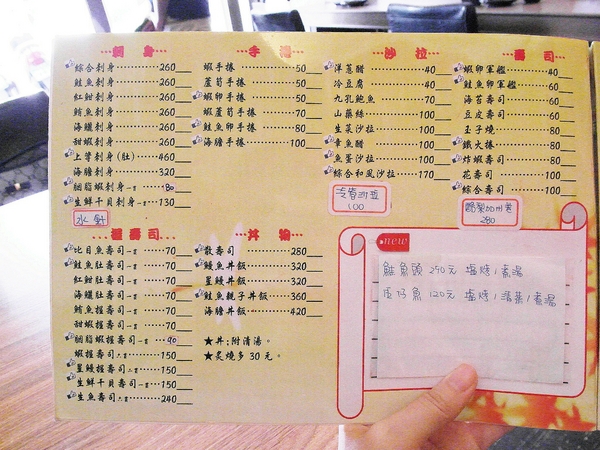 刺身
綜合刺身 260
鮭魚刺身 260
紅魽刺身 260
鮪魚刺身 260
海鱺刺身 260
甜蝦刺身 260
上等刺身(肚) 460
海膽刺身 320
胭脂蝦刺身 80
生鮮干貝刺身 130
水針
手捲
蝦手捲 50
蘆筍手捲 50
蝦卵手捲 50
蝦蘆筍手捲 70
鮭魚卵手捲 80
海膽手捲 100
沙拉
洋蔥醋 40
冷豆腐 40
九孔鮑魚 70
山藥絲 100
生菜沙拉 100
章魚醋 100
魚蛋沙拉 100
綜合和風沙拉 170
100
壽司
蝦卵軍艦 40
鮭魚卵軍艦 60
海苔壽司 60
豆皮壽司 60
玉子燒 60
鐵火捲 80
炸蝦壽司 80
花壽司 100
綜合壽司 100
加州卷
280
握壽司
比目魚壽司 70
鮭魚肚壽司 70
紅魽肚壽司 70
海鱺肚壽司 70
鮪魚握壽司 70
甜蝦握壽司 70
胭脂蝦握壽司 90
蝦握壽司 150
星鰻握壽司 150
生鮮干貝壽司 150
生魚壽司 240
丼物
散壽司 280
鰻魚丼飯 320
星鰻丼飯 320
鮭魚親子丼飯 360
海膽丼飯 420
★丼:附清湯。
★炙燒多30元。
new
鮭魚頭 290元 塩烤/煮湯
120元 塩烤/清蒸/煮湯